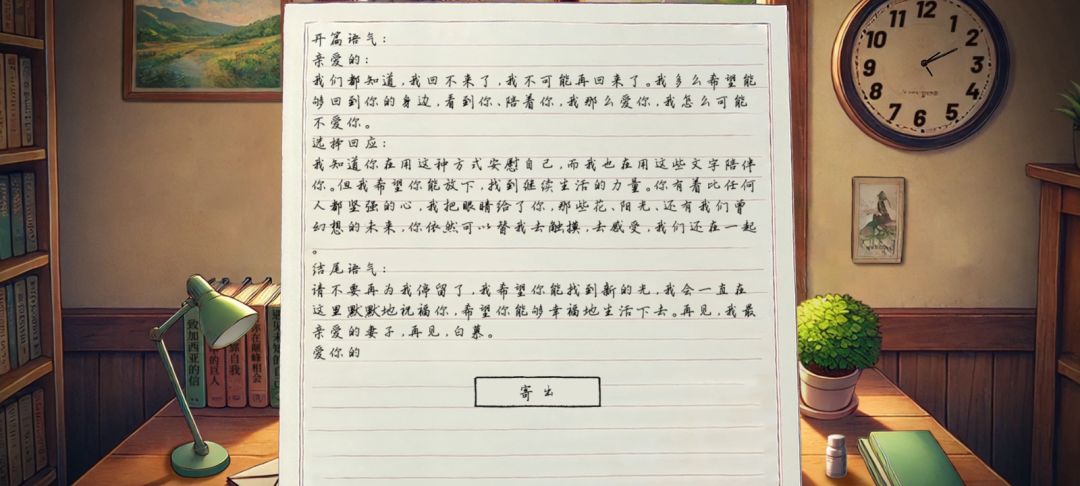 开篇语气：
亲爱的：
我们都知道，我回不来了，我不可能再回来了。我多么希望能
够回到你的身边，看到你、陪着你，我那么爱你，我怎么可能
不爱你。
选择回应：
我知道你在用这种方式安慰自己，而我也在用这些文字陪伴
你。但我希望你能放下，找到继续生活的力量。你有着比任何
人都坚强的心，我把眼睛给了你，那些花、阳光、还有我们曾
幻想的未来，你依然可以替我去触摸，去感受，我们还在一起
。
结尾语气：
请不要再为我停留了，我希望你能找到新的光，我会一直在
这里默默地祝福你，希望你能够幸福地生活下去。再见，我最
亲爱的妻子，再见，白慕。
爱你的
寄出
12
1
2
3
4
5
6
7
8
9
10
11
致加西亚的信
中的巨人
自我
你在巅峰相会
遇见未知的自己